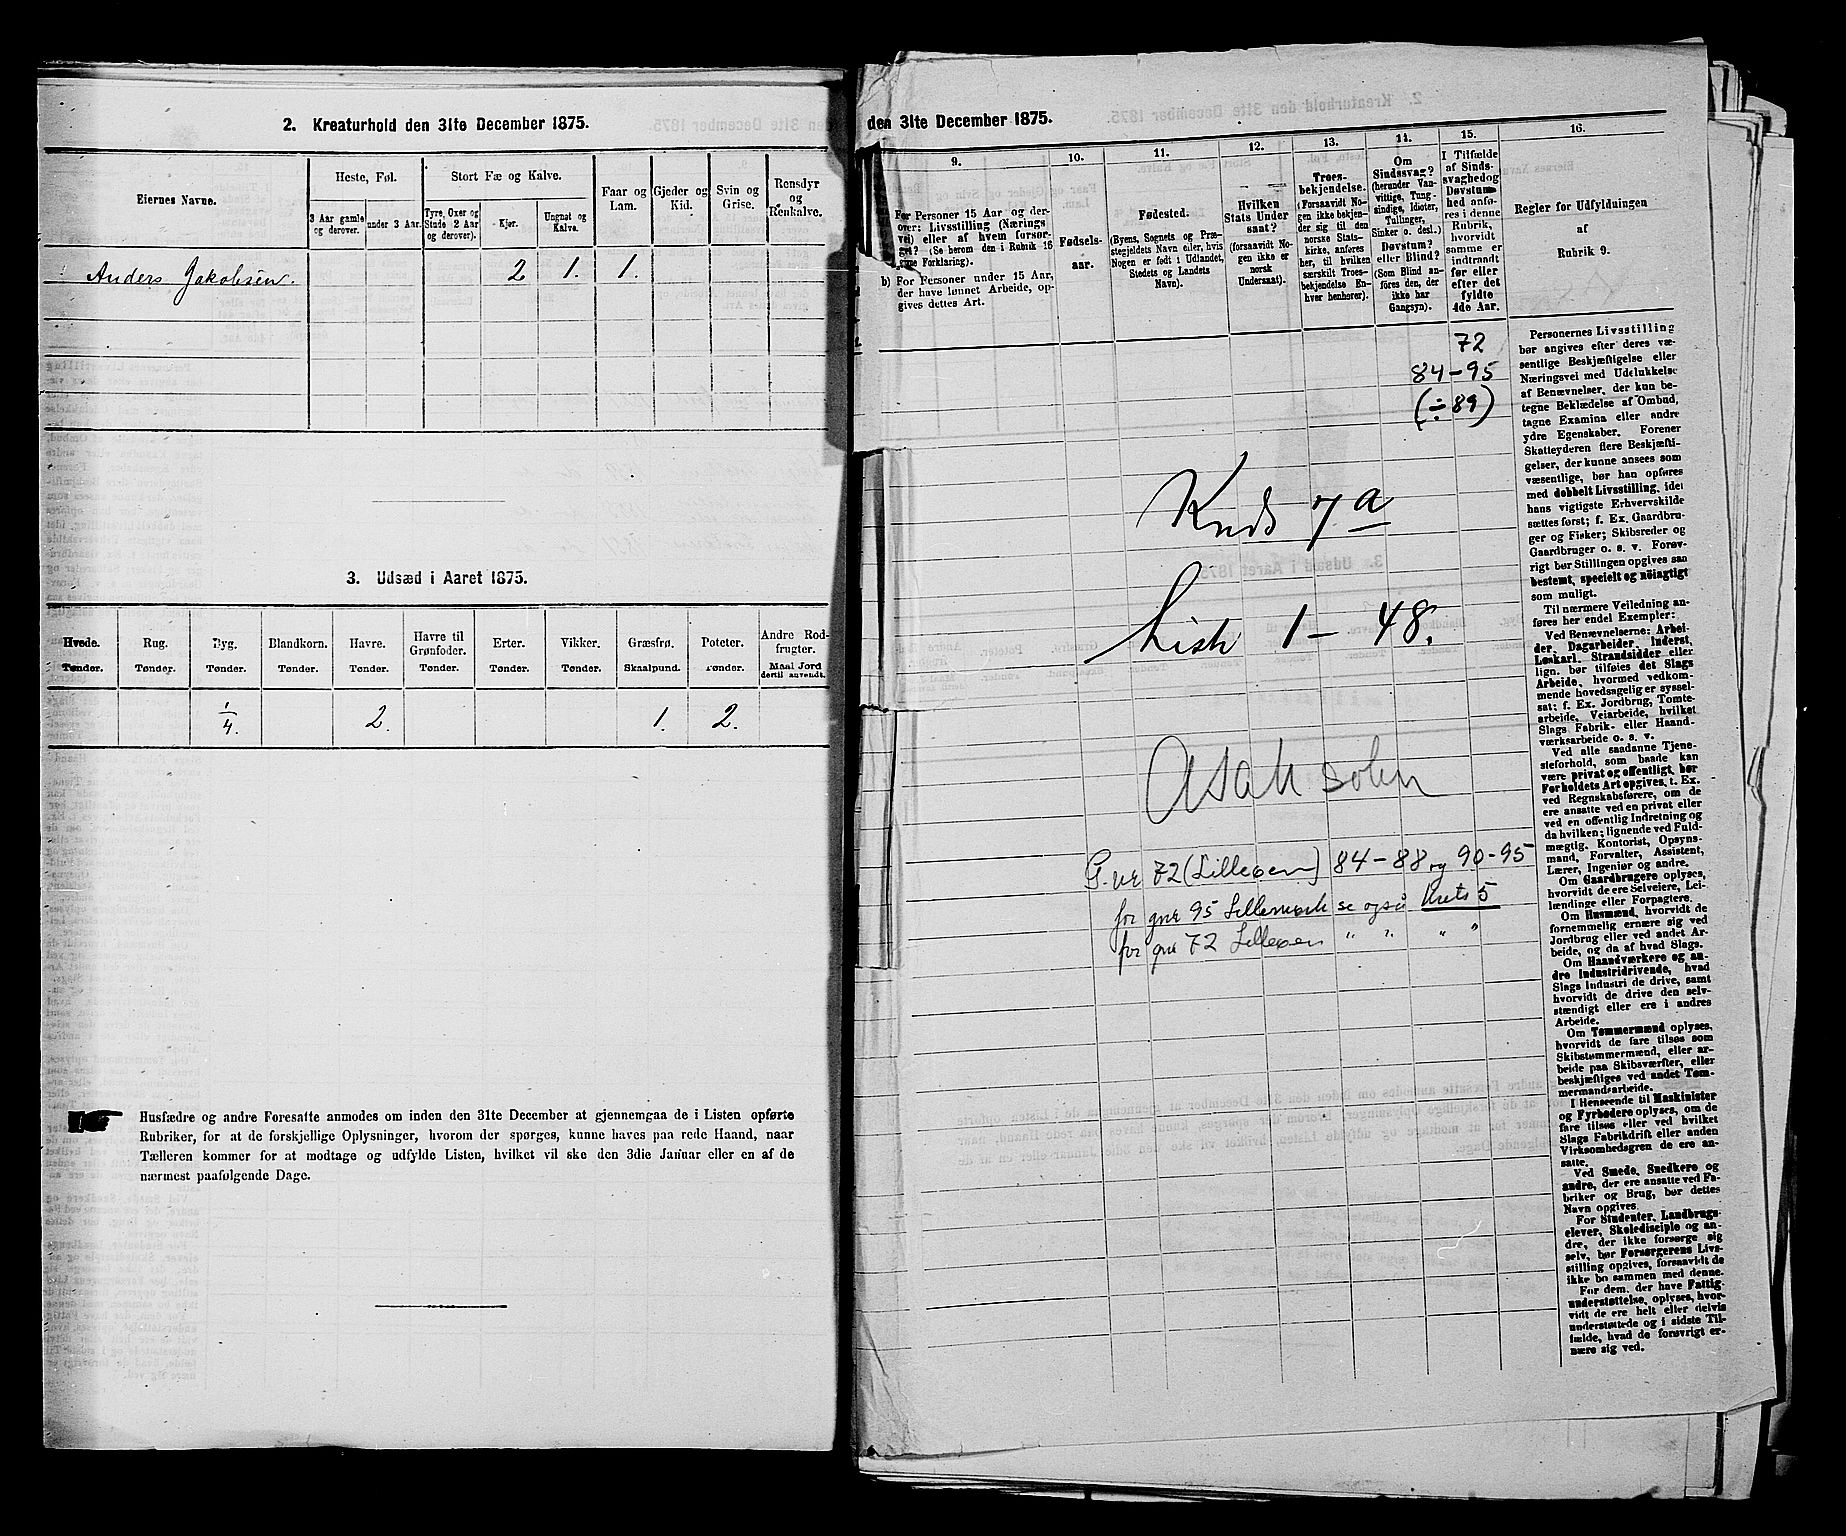 2. Kreaturhold den 31te December 1875.
Eiernes Navne.
Heste, Føl.
Stort Fæ og Kalve.
Faar og Lam.
Gjeder og Kid.
Svin og Grise.
Rensdyr og Renkalve.
3 Aar gamle og derover.
under 3 Aar.
Tyre, Oxer og Stude 2 Aar og derover).
Kjør.
Ungnøt og Kalve.
Anders Jakobsen. 2 1. 1.
3. Udsæd i Aaret 1875.
Hvede. Rug. Byg. Blandkorn. Havre. Havre til Grønfoder. Erter. Vikker. Græsfrø. Poteter. Andre Rodfrugter.
Tønder. Tønder. Tønder. Tønder. Tønder. Tønder. Tønder. Tønder. Skaalpund. Tønder. Maal Jord dertil anvendt.
1/4. 2. 1. 2.
Husfædre og andre Foresatte anmodes om inden den 31te December at gjennemgaa de i Listen opførte
Rubriker, for at de forskjellige Oplysninger, hvorom der spørges, kunne haves paa rede Haand, naar
Tælleren kommer for at modtage og udfylde Listen, hvilket vil ske den 3die Januar eller en af de
nærmest paafølgende Dage.
den 31te December 1875.
9. 10. 11. 12. 13. 14. 15. 16.
For Personer 15 Aar og derover: Livsstilling (Næringsvei) eller af hvem forsørget? (Se herom den i Rubrik 16 givne Forklaring).
b) For Personer under 15 Aar, der have lønnet Arbeide, opgives dettes Art.
Fødselsaar.
Fødested.
(Byens, Sognets og Præstegjeldets Navn eller, hvis Nogen er født i Udlandet, Stedets og Landets Navn).
Hvilken Stats Undersaat?
(forsaavidt Nogen ikke er norsk Undersaat).
Troesbekjendelse.
(Forsaavidt Nogen ikke bekjender sig til den norske Statskirke, anføres her, til hvilken særskilt Troesbekjendelse Enhver henhører).
Om Sindssvag? (herunder Vanvittige, Tungsindige, Idioter, Tullinger, Sinker o. desl.)
Døvstum? eller Blind? (Som Blind anføres den, der ikke har Gangsyn).
I Tilfælde af Sindssvaghed og Døvstumhed anføres i denne Rubrik, hvorvidt samme er indtraadt før eller efter det fyldte 4de Aar.
Regler for Udfyldningen
af
Rubrik 9.
72
84-95
(÷89)
Krds 7a
Liste 1 - 48.
G.nr 72 (Lilleøen) 84-88 og 90-95
for gnr 95 Lillemork se også Krets 5
for gnr 72 Lilleøen " " " "
Personernes Livsstilling
bør angives efter deres væ-
sentlige Beskjæftigelse eller
Næringsvei med Udelukkelse
af Benævnelser, der kun be-
tegne Beklædelse af Ombud,
tagne Examina eller andre
ydre Egenskaber. Forener
Skatteyderen flere Beskjæfti-
gelser, der kunne ansees som
væsentlige, bør han opføres
med dobbelt Livsstilling, idet
hans vigtigste Erhvervskilde
sættes først; f. Ex. Gaardbru-
ger og Fisker; Skibsreder og
Gaardbruger o. s. v. Forøv-
rigt bør Stillingen opgives saa
bestemt, specielt og nøiagtigt
som muligt.
Til nærmere Veiledning an-
føres her endel Exempler:
Ved Benævnelserne: Arbei-
der, Dagarbeider, Inderst,
Løskarl, Strandsidder eller
lign. bør tilføies det Slags
Arbeide, hvormed vedkom-
mende hovedsagelig er syssel-
sat; f. Ex. Jordbrug, Tomte-
arbeide, Veiarbeide, hvilket
Slags Fabrik- eller Haand-
værksarbeide o. s. v.
Ved alle saadanne Tjene-
steforhold, som baade kan
være privat og offentligt, bør
Forholdets Art opgives, t. Ex.
ved Regnskabsførere, om de
ere ansatte ved en privat eller
ved en offentlig Indretning og
da hvilken; lignende ved Fuld-
mægtig, Kontorist, Opsyns-
mand, Forvalter, Assistent,
Lærer, Ingeniør og andre.
Om Gaardbrugere oplyses,
hvorvidt de ere Selveiere, Lei-
lændinge eller Forpagtere.
Om Husmænd, hvorvidt de
fornemmelig ernære sig ved
Jordbrug eller ved andet Ar-
beide, og da af hvad Slags.
Om Haandværkere og an-
dre Industridrivende, hvad
Slags Industri de drive, samt
hvorvidt de drive den selv-
stændigt eller ere i andres
Arbeide.
Om Tømmermænd oplyses,
hvorvidt de fare tilsøs som
Skibstømmermænd, eller ar-
beide paa Skibsværfter, eller
beskjæftiges ved andet Tøm-
mermandsarbeide.
I Henseende til Maskinister
og Fyrbødere oplyses, om de
fare tilsøs eller ved hvilket
Slags Fabrikdrift eller anden
Virksomhedsgren de ere an-
satte.
Ved Smede, Snedkere og
andre, der ere ansatte ved Fa-
briker og Brug, bør dettes
Navn opgives.
For Studenter, Landbrugs-
elever, Skoledisciple og an-
dre, der ikke forsørge sig
selv, bør Forsørgerens Livs-
stilling opgives, forsaavidt de
ikke bo sammen med denne.
For dem, der have Fattig-
understøttelse, oplyses, hvor-
vidt de ere helt eller delvis
understøttede og i sidste Til-
fælde, hvad de forøvrigt er-
nære sig ved.